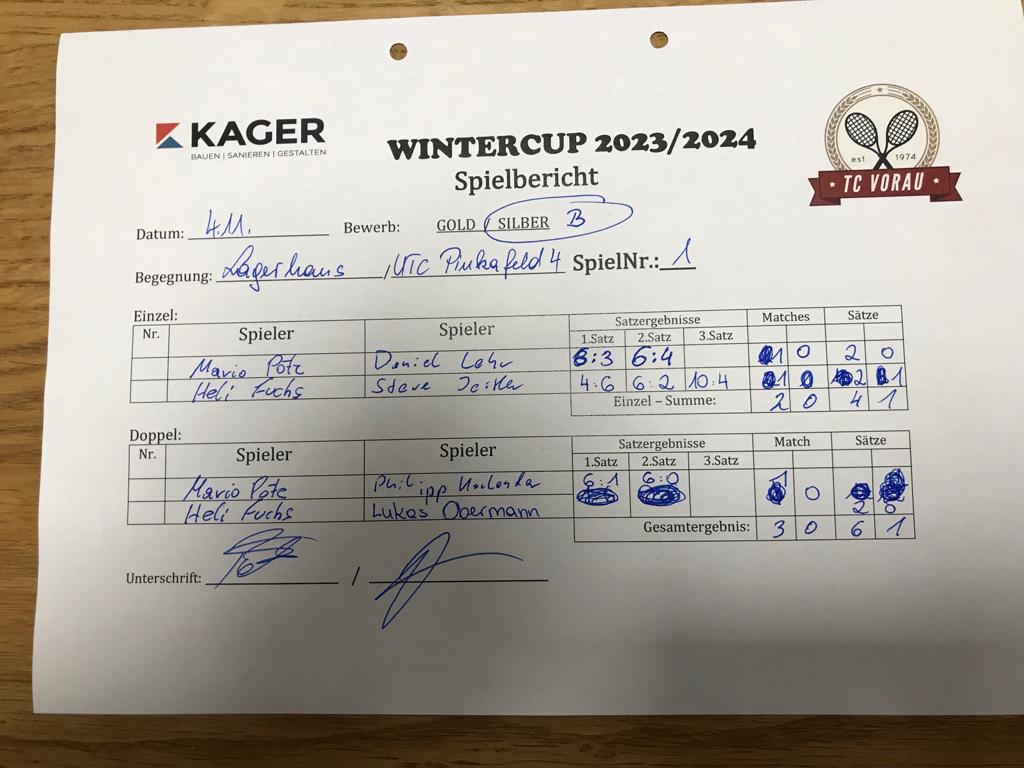 KAGER
BAUEN | SANIEREN | GESTALTEN
WINTERCUP 2023/2024
Spielbericht
est 1974
TC VORAU
Datum: 4.11. Bewerb: GOLD / SILBER B
Begegnung: Lagerhaus / UTC Pinkafeld 4 SpielNr.: 1
Einzel:
Nr. Spieler Spieler Satzergebnisse Matches Sätze
1.Satz 2.Satz 3.Satz
Mario Potz Daniel 6:3 6:4 1 0 2 0
Heli Fuchs Steve 4:6 6:2 10:4 1 0 2 1
Einzel – Summe: 2 0 4 1
Doppel:
Nr. Spieler Spieler Satzergebnisse Match Sätze
1.Satz 2.Satz 3.Satz
Mario Potz Philipp 6:1 6:0 1 0
Heli Fuchs Lukas Obermann 2 0
Gesamtergebnis: 3 0 6 1
Unterschrift: /